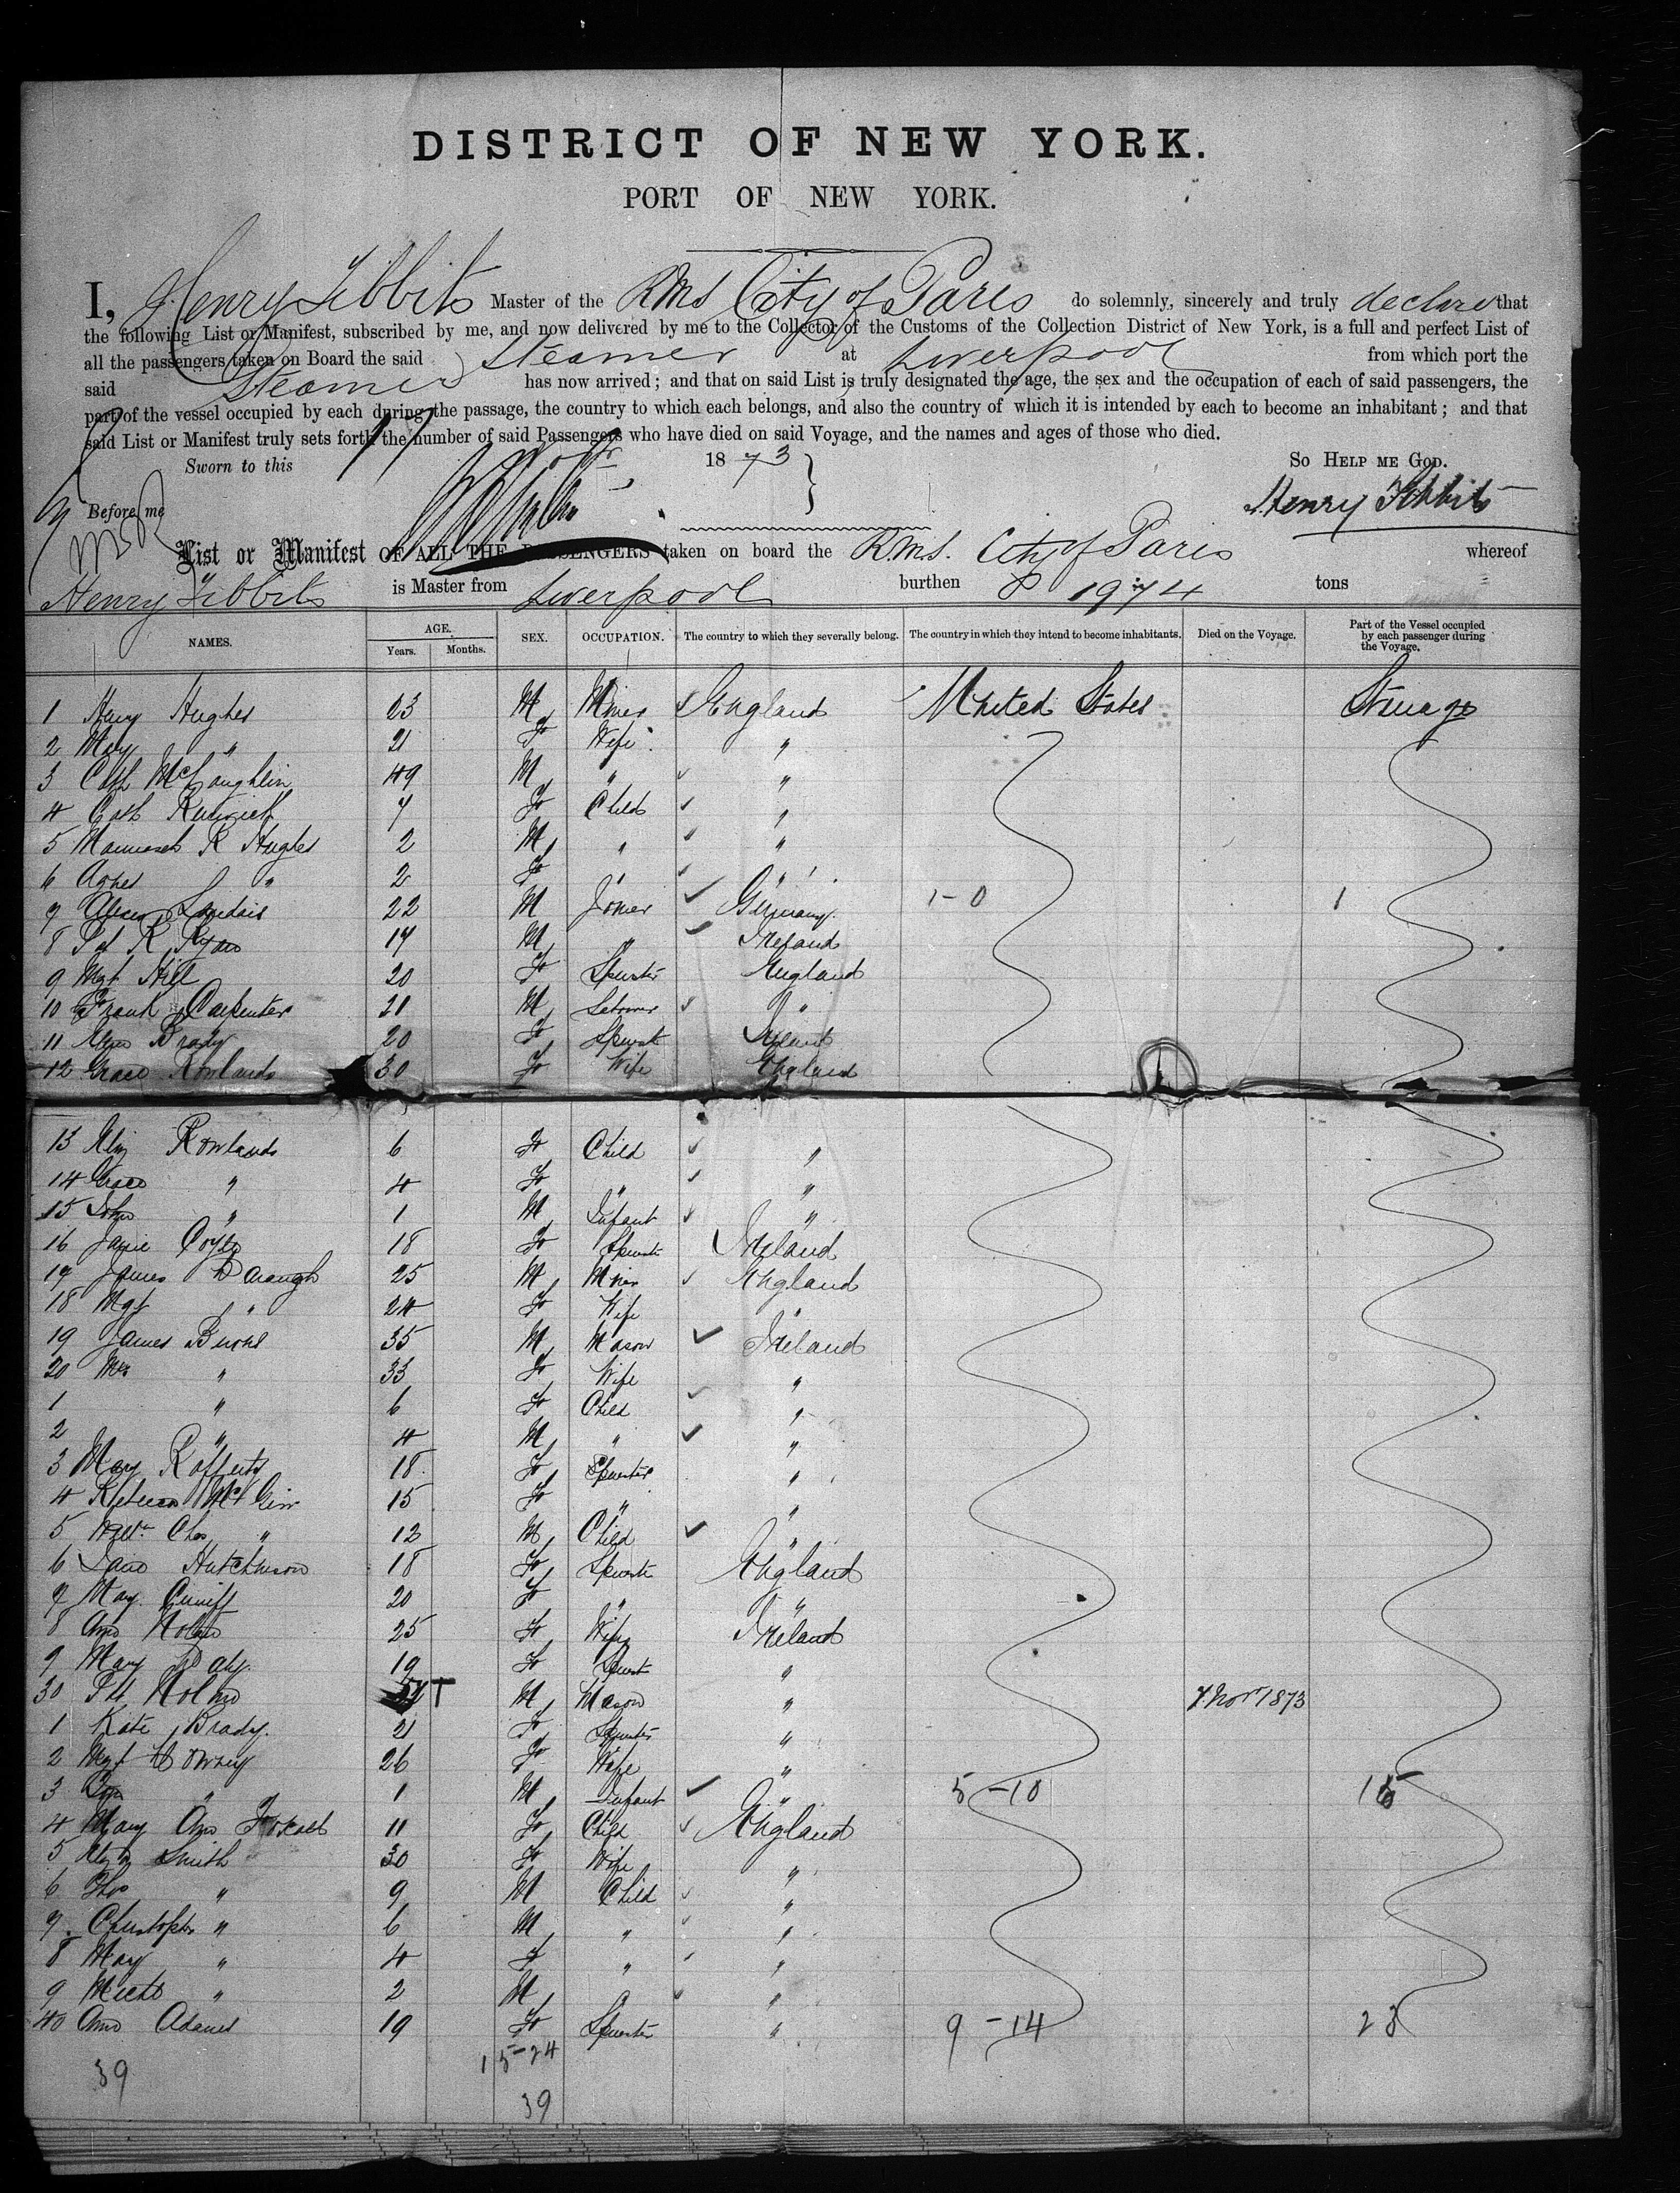 DISTRICT OF NEW YORK.
PORT OF NEW YORK.
I, Henry Tibbits Master of the RMS City of Paris do solemnly, sincerely and truly declare that
the following List or Manifest, subscribed by me, and now delivered by me to the Collector of the Customs of the Collection District of New York, is a full and perfect List of
all the passengers taken on Board the said Steamer at Liverpool from which port the
said Steamer has now arrived; and that on said List is truly designated the age, the sex and the occupation of each of said passengers, the
part of the vessel occupied by each during the passage, the country to which each belongs, and also the country of which it is intended by each to become an inhabitant; and that
said List or Manifest truly sets forth the number of said Passengers who have died on said Voyage, and the names and ages of those who died.
Sworn to this 17 Novr 1873 So Help me God.
Before me Henry Tibbits
List or Manifest OF ALL THE PASSENGERS taken on board the R.M.S. City of Paris whereof
Henry Tibbits is Master from Liverpool burthen 1974 tons
NAMES. AGE. Years. Months. SEX. OCCUPATION. The country to which they severally belong. The country in which they intend to become inhabitants. Died on the Voyage. Part of the Vessel occupied by each passenger during the Voyage.
1 Henry Hughes 23 M Miner England United States Steerage
2 Mary " 21 F Wife "
3 Cath McLoughlin 49 M " "
4 Cath 7 F Child "
5 R Hughes 2 M " "
6 Agnes " 2 F " "
7 22 M Joiner Germany 1-0 1
8 Pat R Ryan 17 M " Ireland
9 Mgt Hill 20 F Spinster England
10 Frank Carpenter 21 M Laborer "
11 Brady 20 F Spinst Ireland
12 Grace Rowlands 30 F Wife England
13 Eliz Rowlands 6 F Child "
14 Grace " 4 F " "
15 John " 1 M Infant "
16 Janie Coyle 18 F Spinst Ireland
17 James Daraugh 25 M Miner England
18 Mgt " 24 F Wife "
19 James Burns 35 M Mason Ireland
20 Mrs " 33 F Wife "
1 " 6 F Child "
2 " 4 M " "
3 Mary Rafferty 18 F Spinster "
4 Rebecca McGinn 15 F " "
5 Chas " 12 M Child "
6 Jane Hutchinson 18 F Spinst England
7 Mary 20 F " "
8 Ann Nolan 25 F Wife Ireland
9 Mary Daly 19 F Spinst "
30 Pat Nolan M Mason " 7 Novr 1873
1 Kate Brady 21 F Spinster "
2 Mgt Downey 26 F Wife "
3 " 1 M Infant " 5-10 15
4 Mary Ann 11 F Child England
5 Eliza Smith 30 F Wife "
6 Thos " 9 M Child "
7 Christopher " 6 M " "
8 Mary " 4 F " "
9 Michl " 2 M " "
40 Ann Adams 19 F Spinster " 9-14 23
39 15-24
39